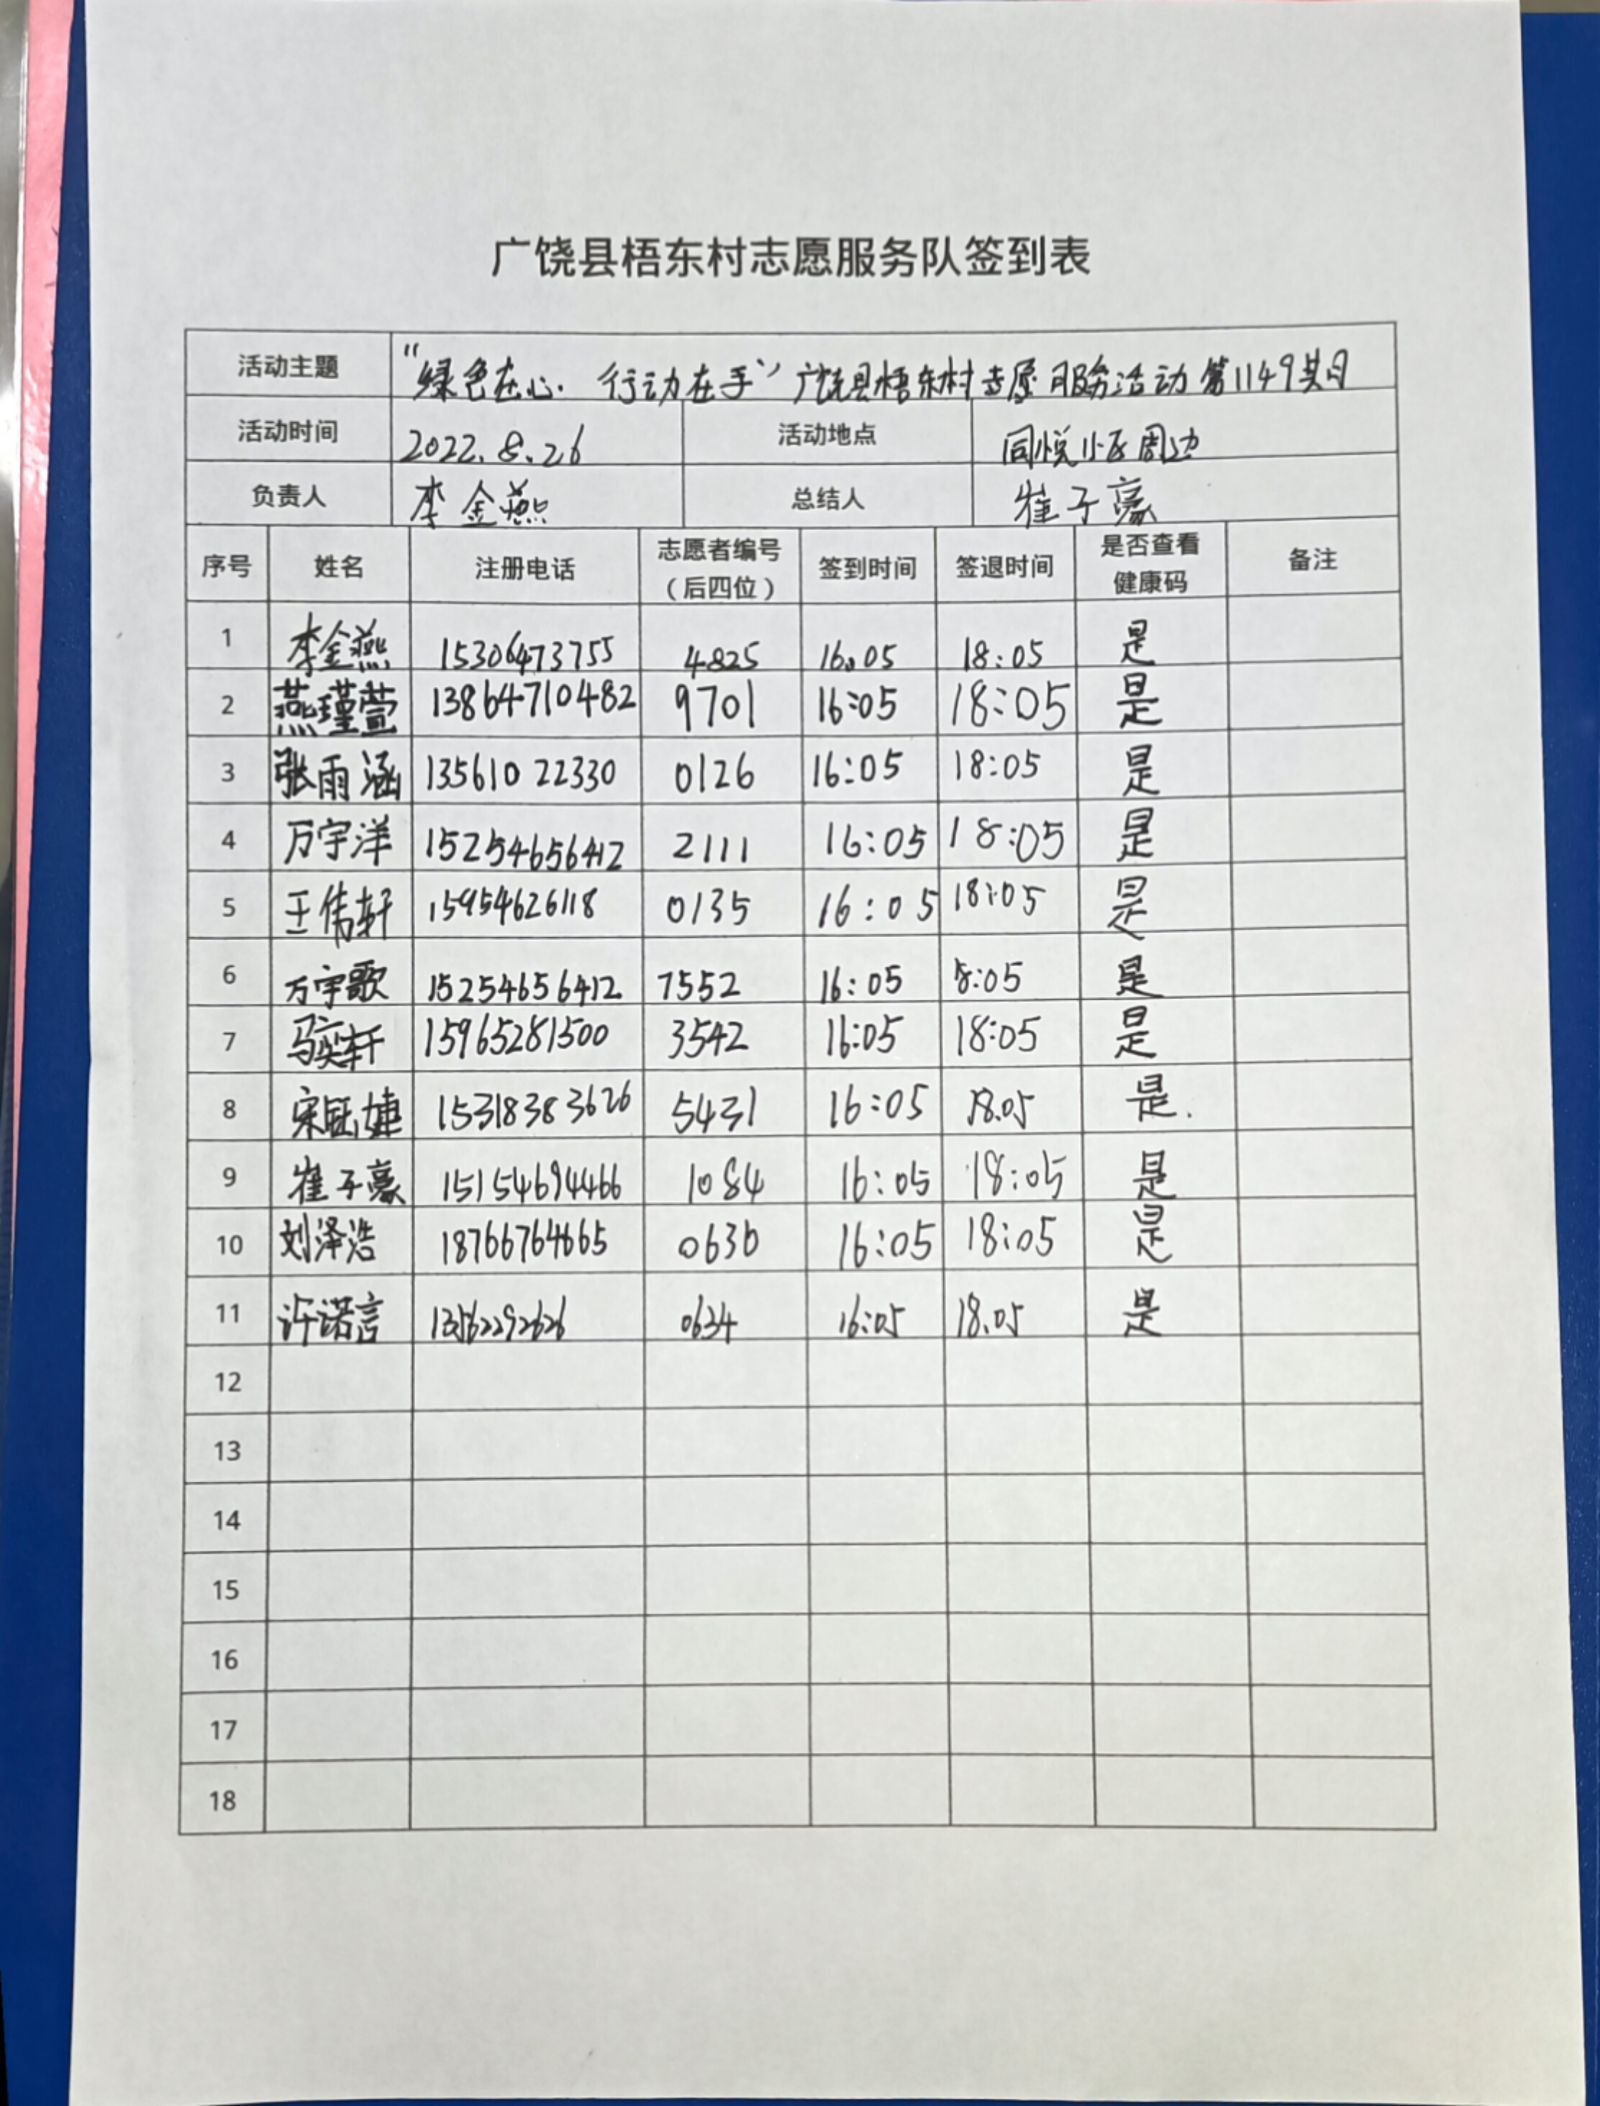 广饶县梧东村志愿服务队签到表
活动主题 "绿色在心.行动在手"广饶县梧东村志愿服务活动第1149期
活动时间 2022.8.26 活动地点 同悦小区周边
负责人 李金燕 总结人 崔子豪
序号 姓名 注册电话 志愿者编号（后四位） 签到时间 签退时间 是否查看健康码 备注
1 李金燕 15306473755 4825 16:05 18:05 是
2 燕瑾萱 13864710482 9701 16:05 18:05 是
3 张雨涵 13561022330 0126 16:05 18:05 是
4 万宇洋 15254656412 2111 16:05 18:05 是
5 王伟轩 15954626118 0135 16:05 18:05 是
6 万宇歌 15254656412 7552 16:05 18:05 是
7 马奕轩 15965281500 3542 16:05 18:05 是
8 15318383626 5431 16:05 18.05 是.
9 崔子豪 15154694466 1084 16:05 18:05 是
10 刘泽浩 18766764665 0636 16:05 18:05 是
11 许诺言 13562292626 0634 16:05 18.05 是
12
13
14
15
16
17
18